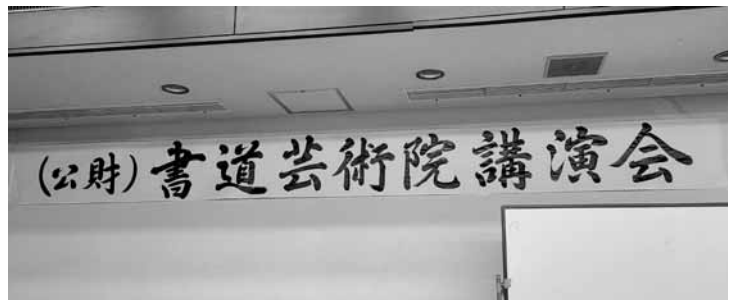 (公財)書道芸術院講演会